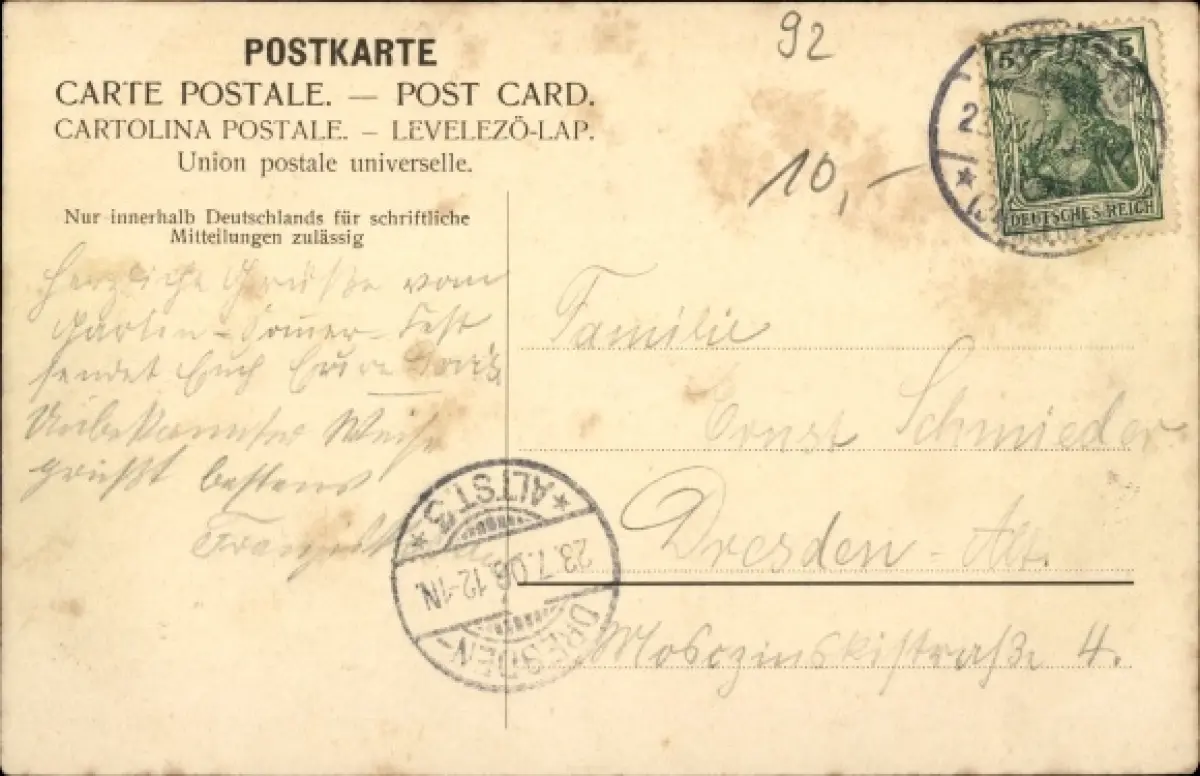 POSTKARTE
CARTE POSTALE. — POST CARD.
CARTOLINA POSTALE. – LEVELEZÖ-LAP.
Union postale universelle.
Nur innerhalb Deutschlands für schriftliche
Mitteilungen zulässig
92
10,–
5 5
DEUTSCHES REICH
Herzliche Grüße vom
Garten-Sommer-Fest
sendet Euch Eure
Unbekannter Weise
grüßt bestens
Familie
Ernst Schmieder
Dresden-Alt.
Mosczinskistraße 4.
*ALTST. 3*
23.7.06. 12-1N.
DRESDEN-